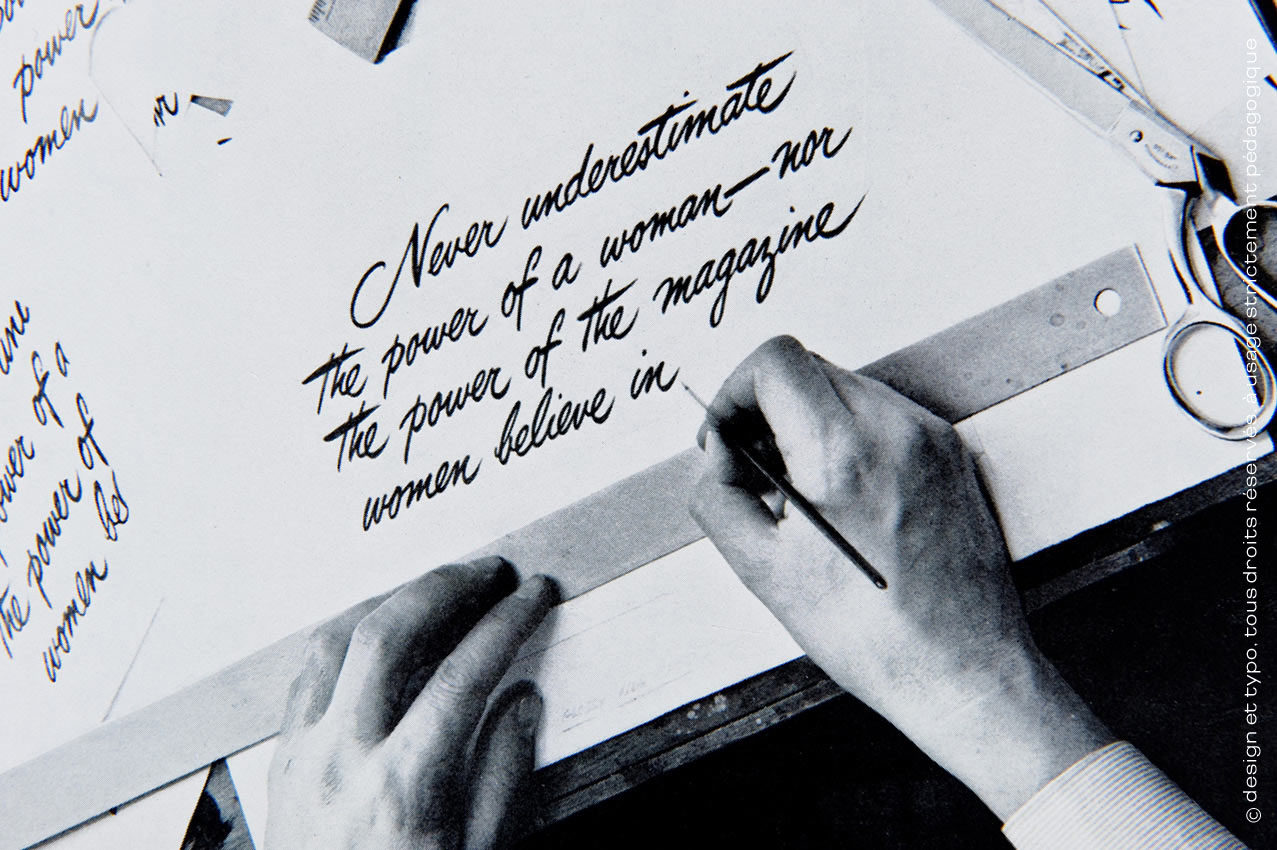 power
women
Never underestimate
the power of a woman—nor
the power of the magazine
women believe in
power of a
the power of
women bel
© design et typo. tous droits réservés à usage strictement pédagogique